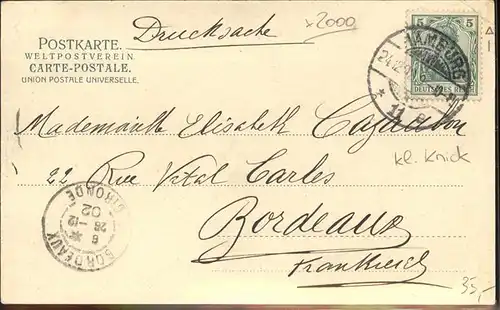 Drucksache
x2000
POSTKARTE.
WELTPOSTVEREIN.
CARTE-POSTALE.
UNION POSTALE UNIVERSELLE.
5 5
DEUTSCHES REICH
HAMBURG
11
Mademoiselle Elisabeth
kl. Knick
22 Rue Vital Carles
Bordeaux
Frankreich
BORDEAUX
GIRONDE
6
26 -12
02
35,-